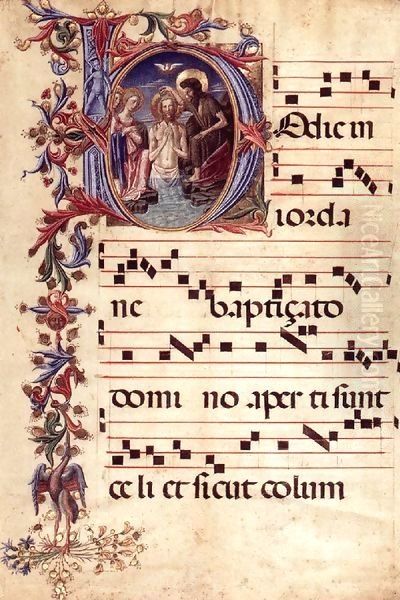 HOdie in
iorda
ne baptiçato
domi no aper ti sunt
ce li et sicut colum